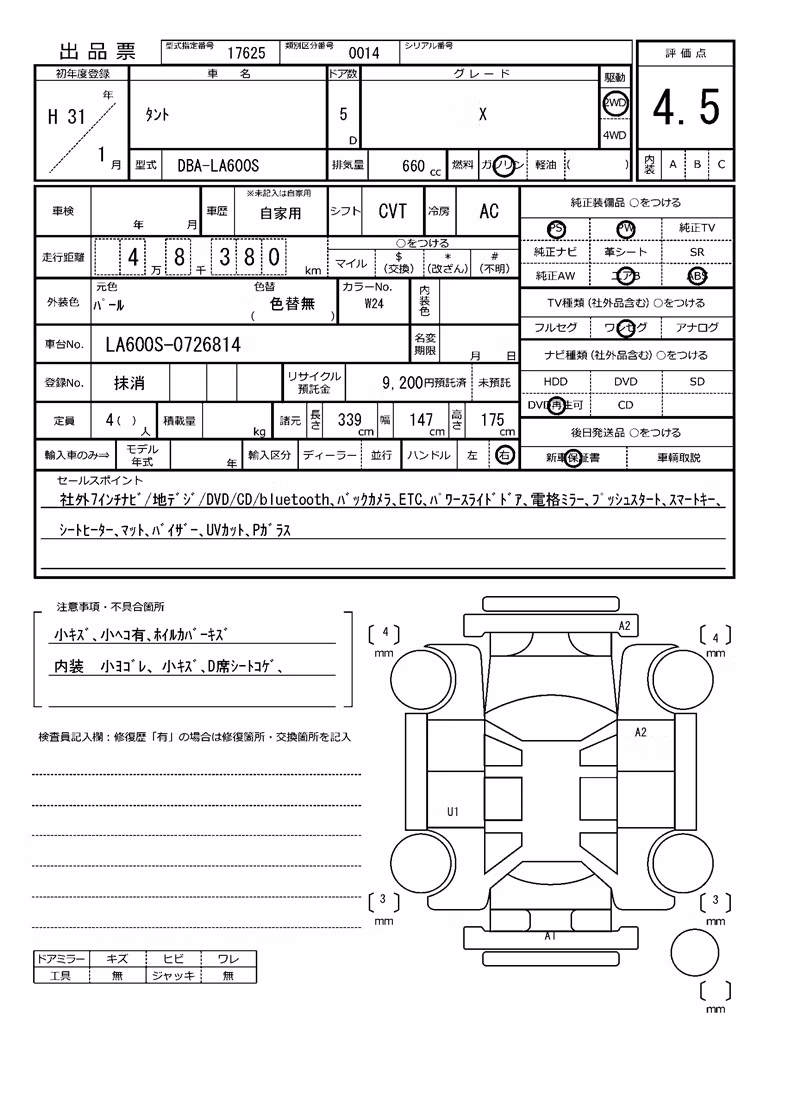 出品票 型式指定番号 17625 類別区分番号 0014 シリアル番号
評価点
4.5
内装 A B C
初年度登録 車名 ドア数 グレード 駆動
H 31 年 1 月
ﾀﾝﾄ 5 D X 2WD
4WD
型式 DBA-LA600S 排気量 660 cc 燃料 ガソリン 軽油 ( )
車検 年 月 車歴 ※未記入は自家用 自家用 シフト CVT 冷房 AC
走行距離 4 万 8 千 3 8 0 km
○をつける
マイル $(交換) *(改ざん) #(不明)
外装色 元色 ﾊﾟｰﾙ 色替 ( 色替無 ) カラーNo. W24 内装色
車台No. LA600S-0726814 名変期限 月 日
登録No. 抹消 リサイクル預託金 9,200円預託済 未預託
定員 4( )人 積載量 kg 諸元 長さ 339 cm 幅 147 cm 高さ 175 cm
輸入車のみ⇒ モデル年式 年 輸入区分 ディーラー 並行 ハンドル 左 右
純正装備品 ○をつける
PS PW 純正TV
純正ナビ 革シート SR
純正AW エアB ABS
TV種類(社外品含む)○をつける
フルセグ ワンセグ アナログ
ナビ種類(社外品含む)○をつける
HDD DVD SD
DVD再生可 CD
後日発送品 ○をつける
新車保証書 車輌取説
セールスポイント
社外7ｲﾝﾁﾅﾋﾞ/地ﾃﾞｼﾞ/DVD/CD/bluetooth､ﾊﾞｯｸｶﾒﾗ､ETC､ﾊﾟﾜｰｽﾗｲﾄﾞﾄﾞｱ､電格ﾐﾗｰ､ﾌﾟｯｼｭｽﾀｰﾄ､ｽﾏｰﾄｷｰ､
ｼｰﾄﾋｰﾀｰ､ﾏｯﾄ､ﾊﾞｲｻﾞｰ､UVｶｯﾄ､Pｶﾞﾗｽ
注意事項・不具合箇所
小ｷｽﾞ､小ﾍｺ有､ﾎｲﾙｶﾊﾞｰｷｽﾞ
内装 小ﾖｺﾞﾚ、小ｷｽﾞ､D席ｼｰﾄｺｹﾞ､
検査員記入欄：修復歴「有」の場合は修復箇所・交換箇所を記入
ドアミラー キズ ヒビ ワレ
工具 無 ジャッキ 無
A2
4 mm
4 mm
A2
U1
3 mm
3 mm
A1
mm